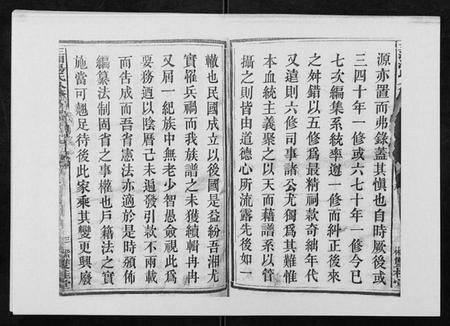 源亦置而弗錄蓋其愼也自時厥後或
三四十年一修或六七十年一修今已
七次編集系統率遵一修而糾正後來
之舛錯以五修爲最精祠款奇絀年代
又遠則六修司事諸公尤獨爲其難惟
本血統主義聚之以天而藉譜系以管
攝之則皆由道德心所流露先後如一
轍也民國成立以後國是益紛吾湘尤
實罹兵禍而我族譜之未獲續輯冉冉
又屆一紀族中無老少智愚僉視此爲
要務迺以陰曆己未遍發引款不兩載
而告成而吾省憲法亦適於是時頒佈
編纂法制固省之事權也戶籍法之實
施當可翹足待後此家乘其變更興廢